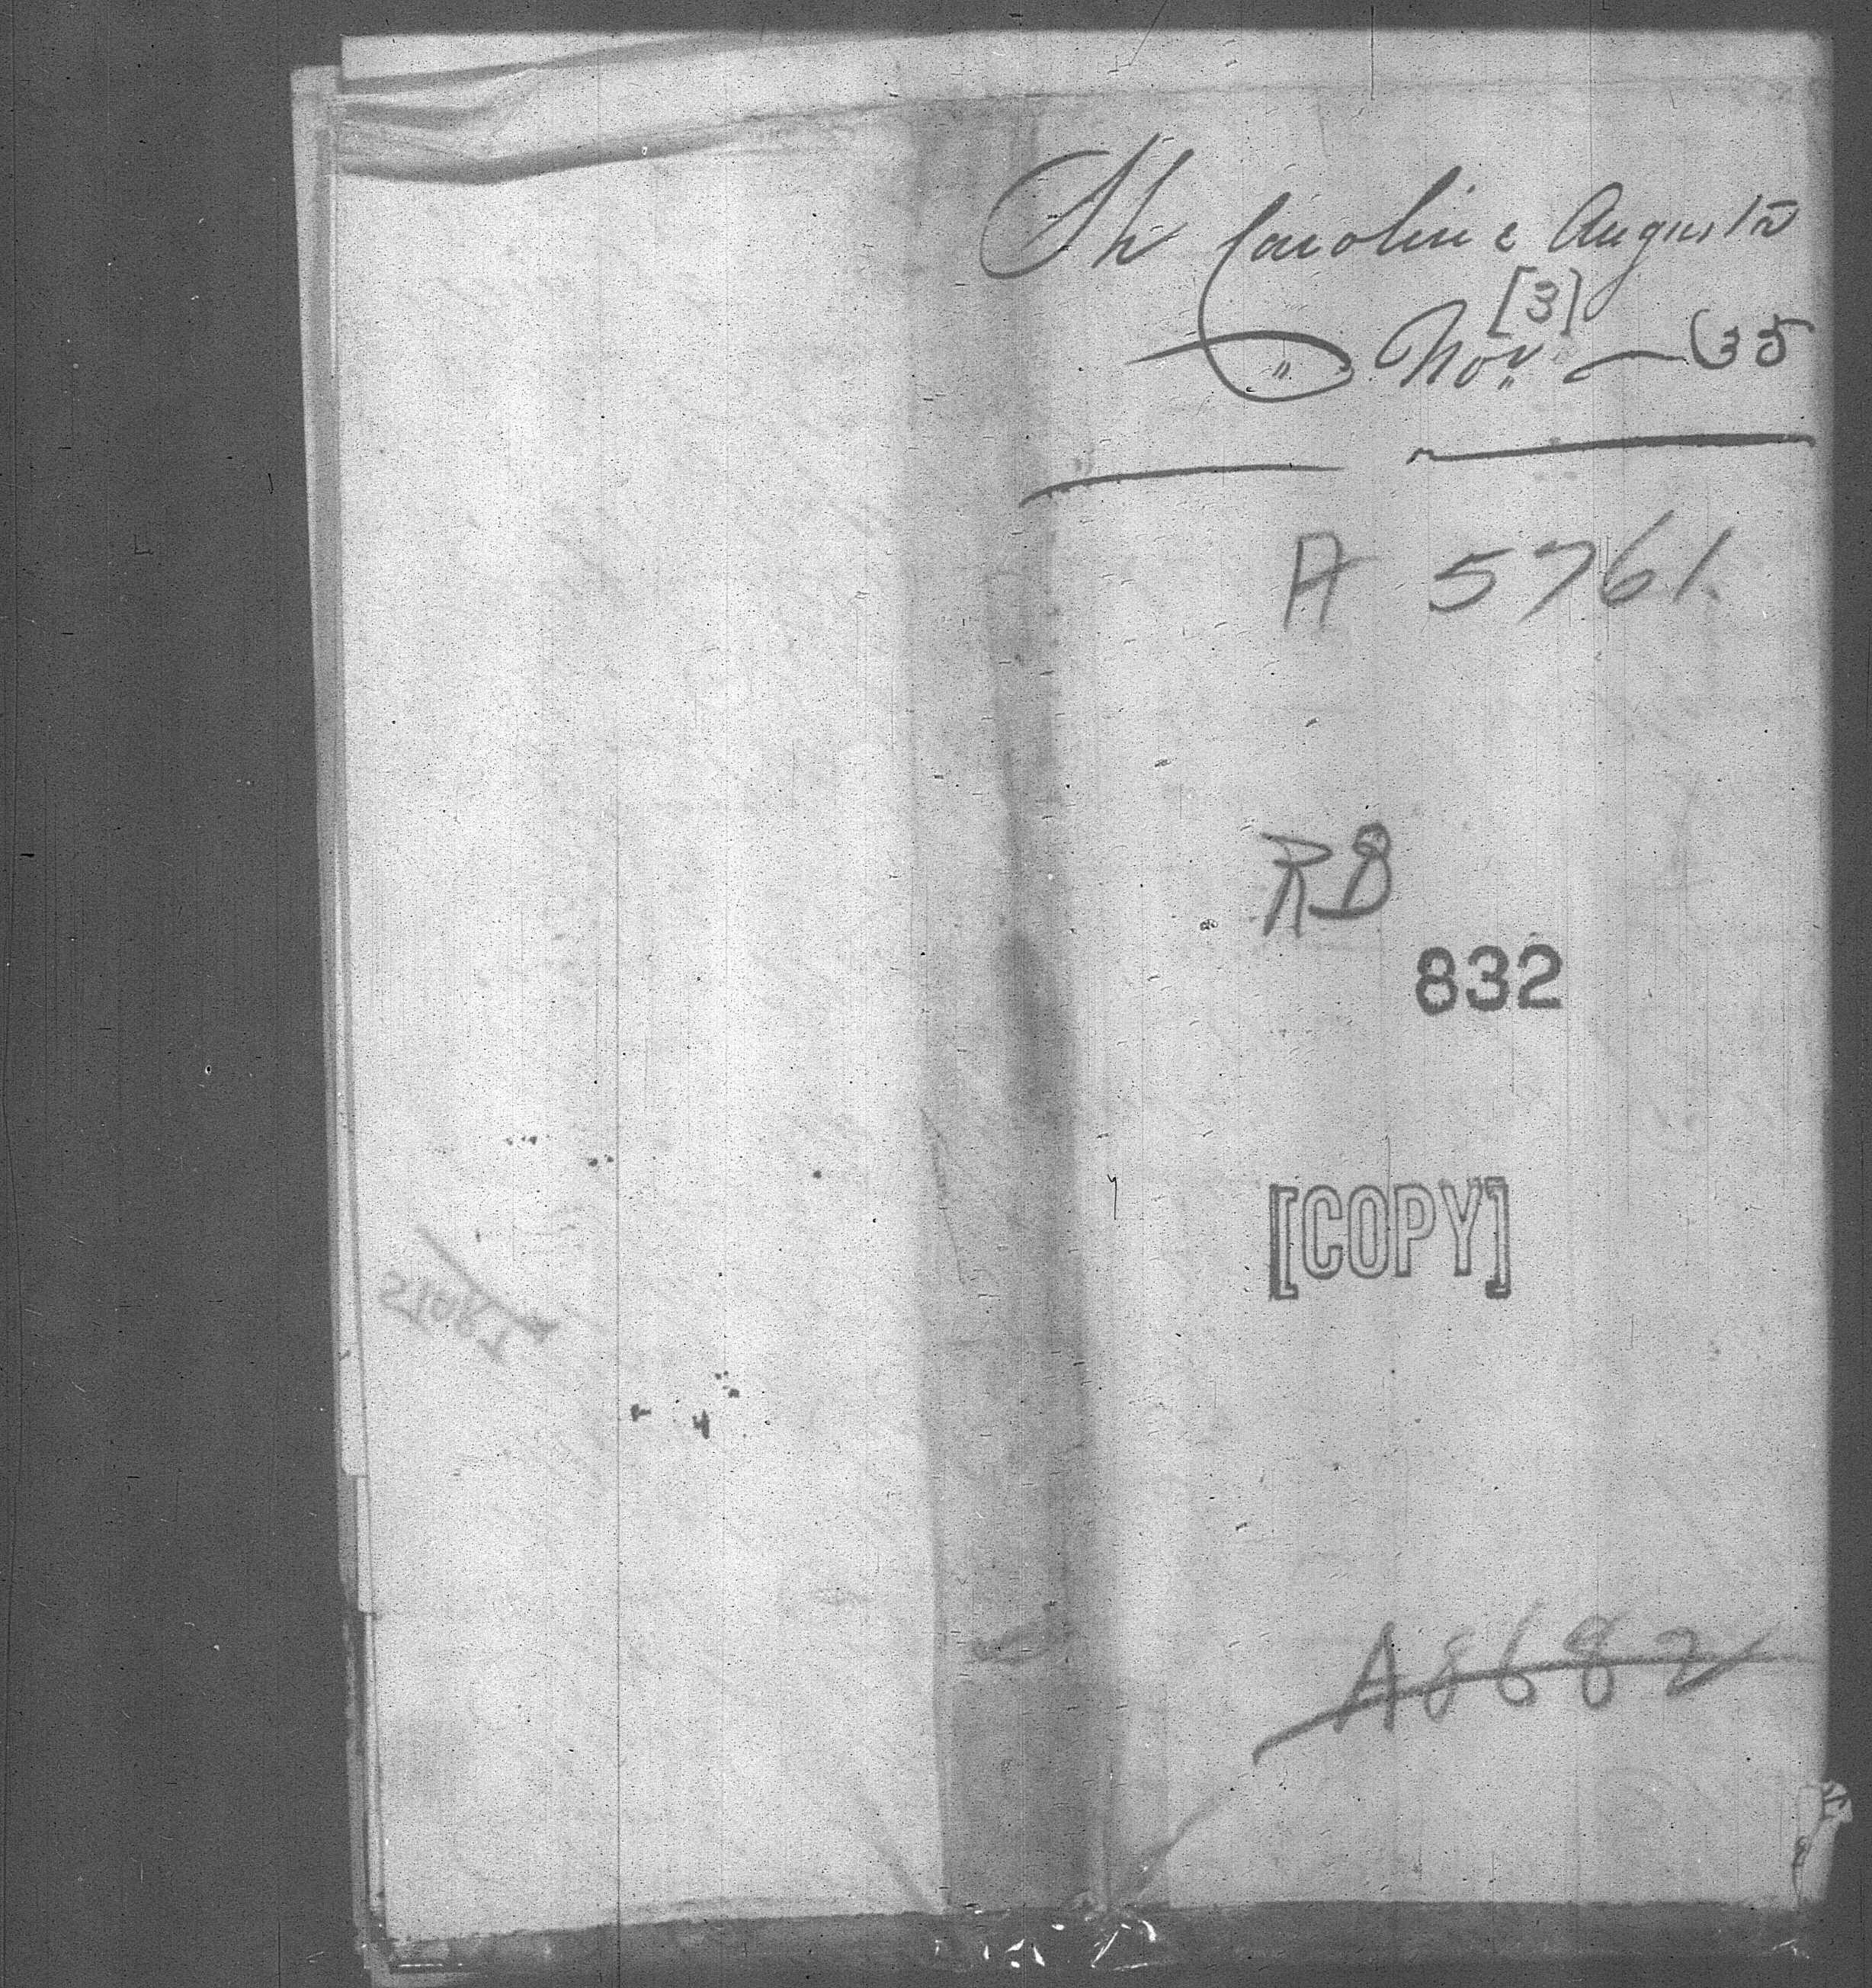 Sh Caroline Augusta
[3]
" Nov. 35
A 5761
RB
832
[COPY]
A8682